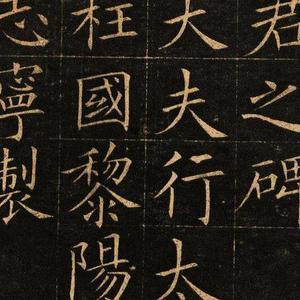 君之碑
大夫行太
柱國黎陽
志寧製